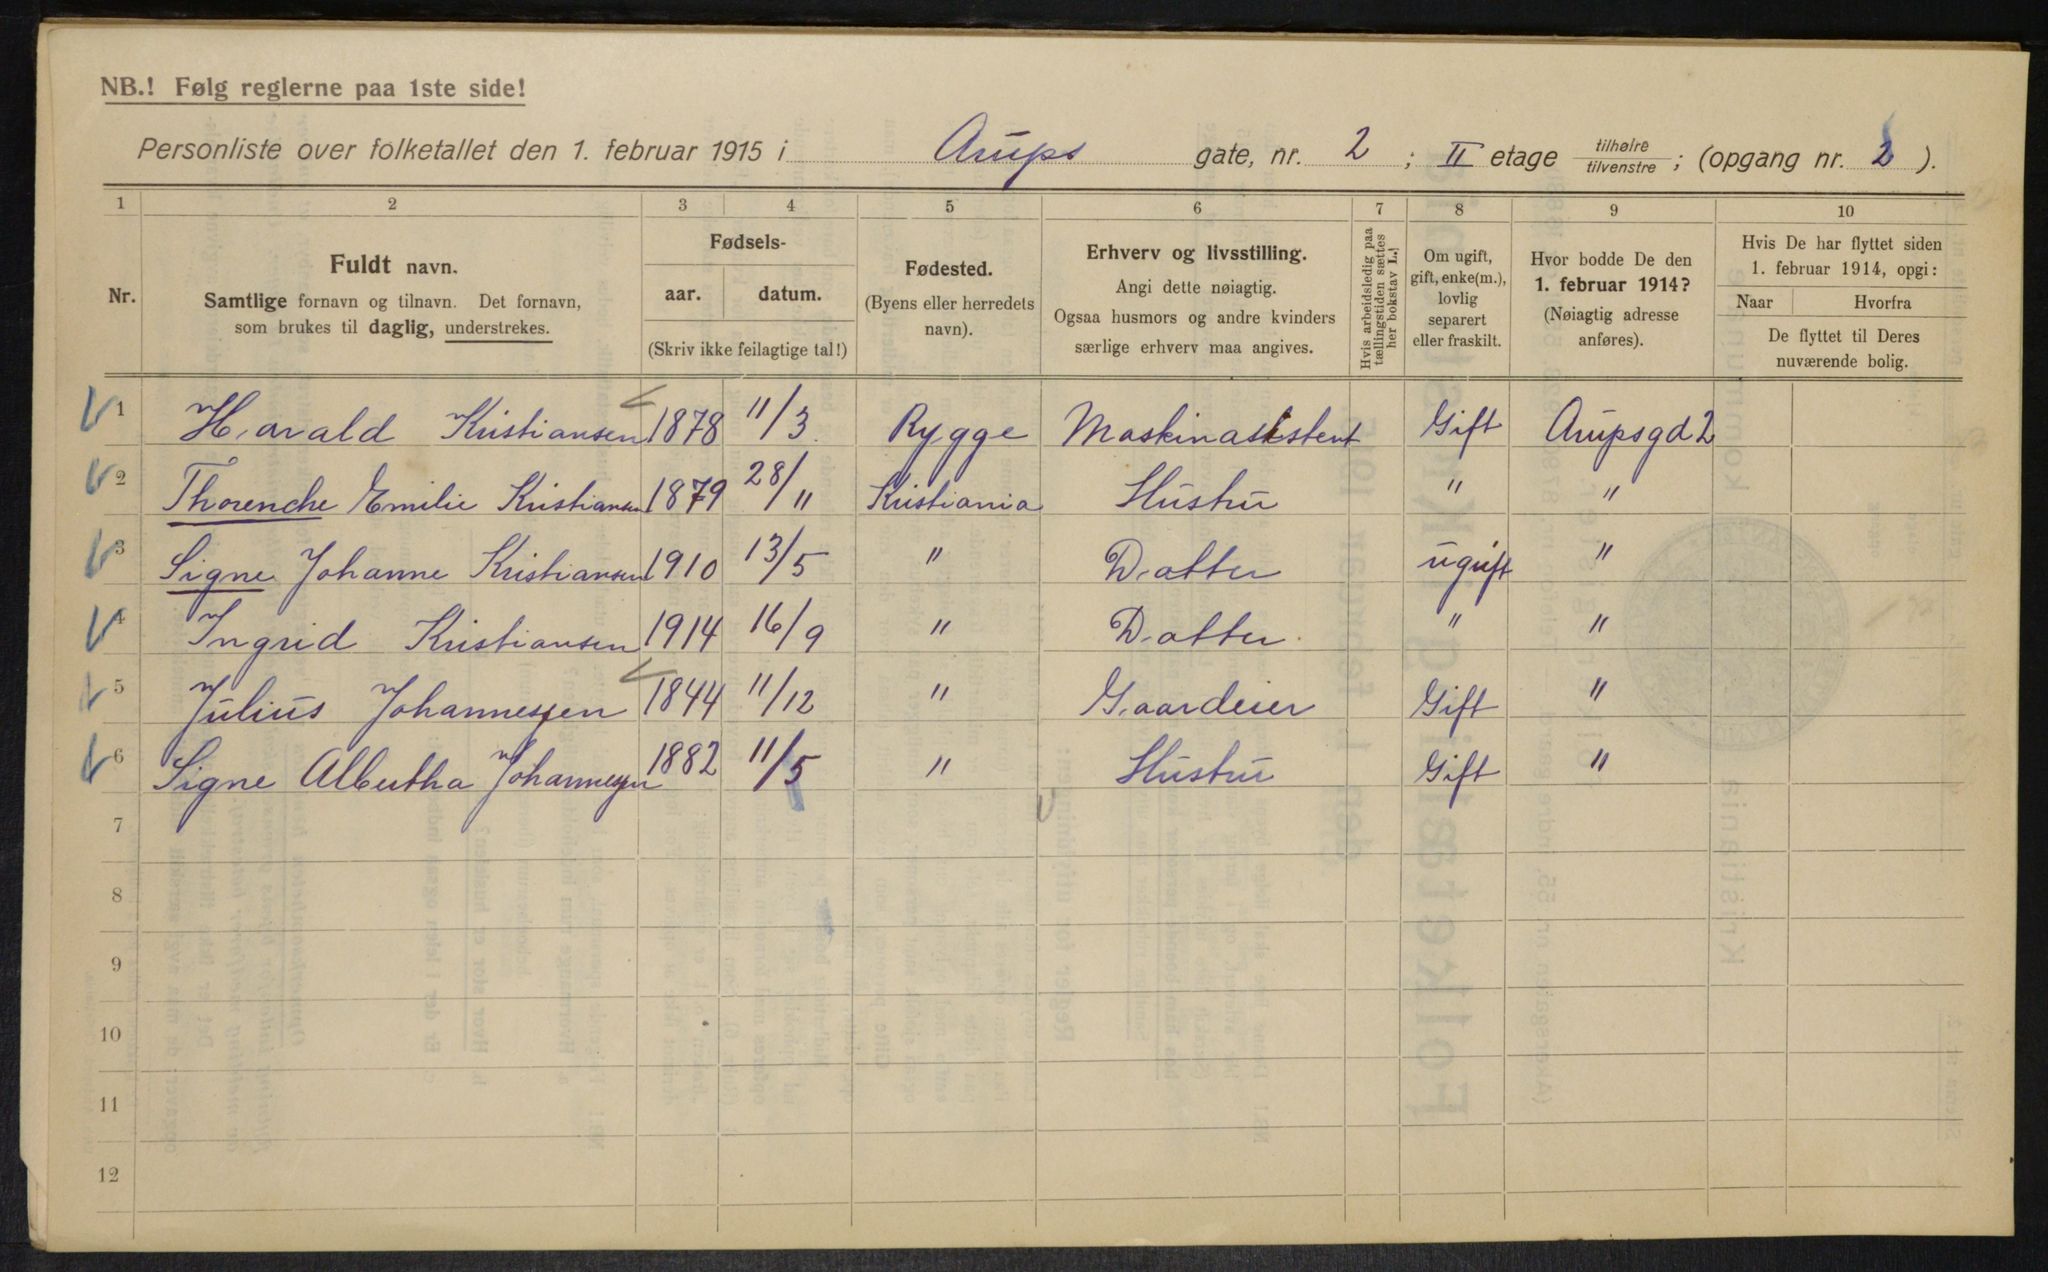 NB.! Følg reglerne paa 1ste side!
Personliste over folketallet den 1. februar 1915 i Arups gate, nr. 2 ; II etage tilhøire/tilvenstre ; (opgang nr. 2 ).
1 2 3 4 5 6 7 8 9 10
Nr.
Fuldt navn.
Samtlige fornavn og tilnavn. Det fornavn,
som brukes til daglig, understrekes.
Fødsels-
aar. datum.
(Skriv ikke feilagtige tal!)
Fødested.
(Byens eller herredets
navn).
Erhverv og livsstilling.
Angi dette nøiagtig.
Ogsaa husmors og andre kvinders
særlige erhverv maa angives.
Hvis arbeidsledig paa
tællingstiden sættes
her bokstav L.
Om ugift,
gift, enke(m.),
lovlig
separert
eller fraskilt.
Hvor bodde De den
1. februar 1914?
(Nøiagtig adresse
anføres).
Hvis De har flyttet siden
1. februar 1914, opgi:
Naar Hvorfra
De flyttet til Deres
nuværende bolig.
1 Harald Kristiansen 1878 11/3 Rygge Maskinasistent Gift Arupsgd 2
2 Thorenche Emilie Kristiansen 1879 28/11 Kristiania Hustru " "
3 Signe Johanne Kristiansen 1910 13/5 " Datter ugift "
4 Ingrid Kristiansen 1914 16/9 " Datter " "
5 Julius Johannessen 1844 11/12 " Gaardeier Gift "
6 Signe Albertha Johannessen 1882 11/5 " Hustru Gift "
7
8
9
10
11
12